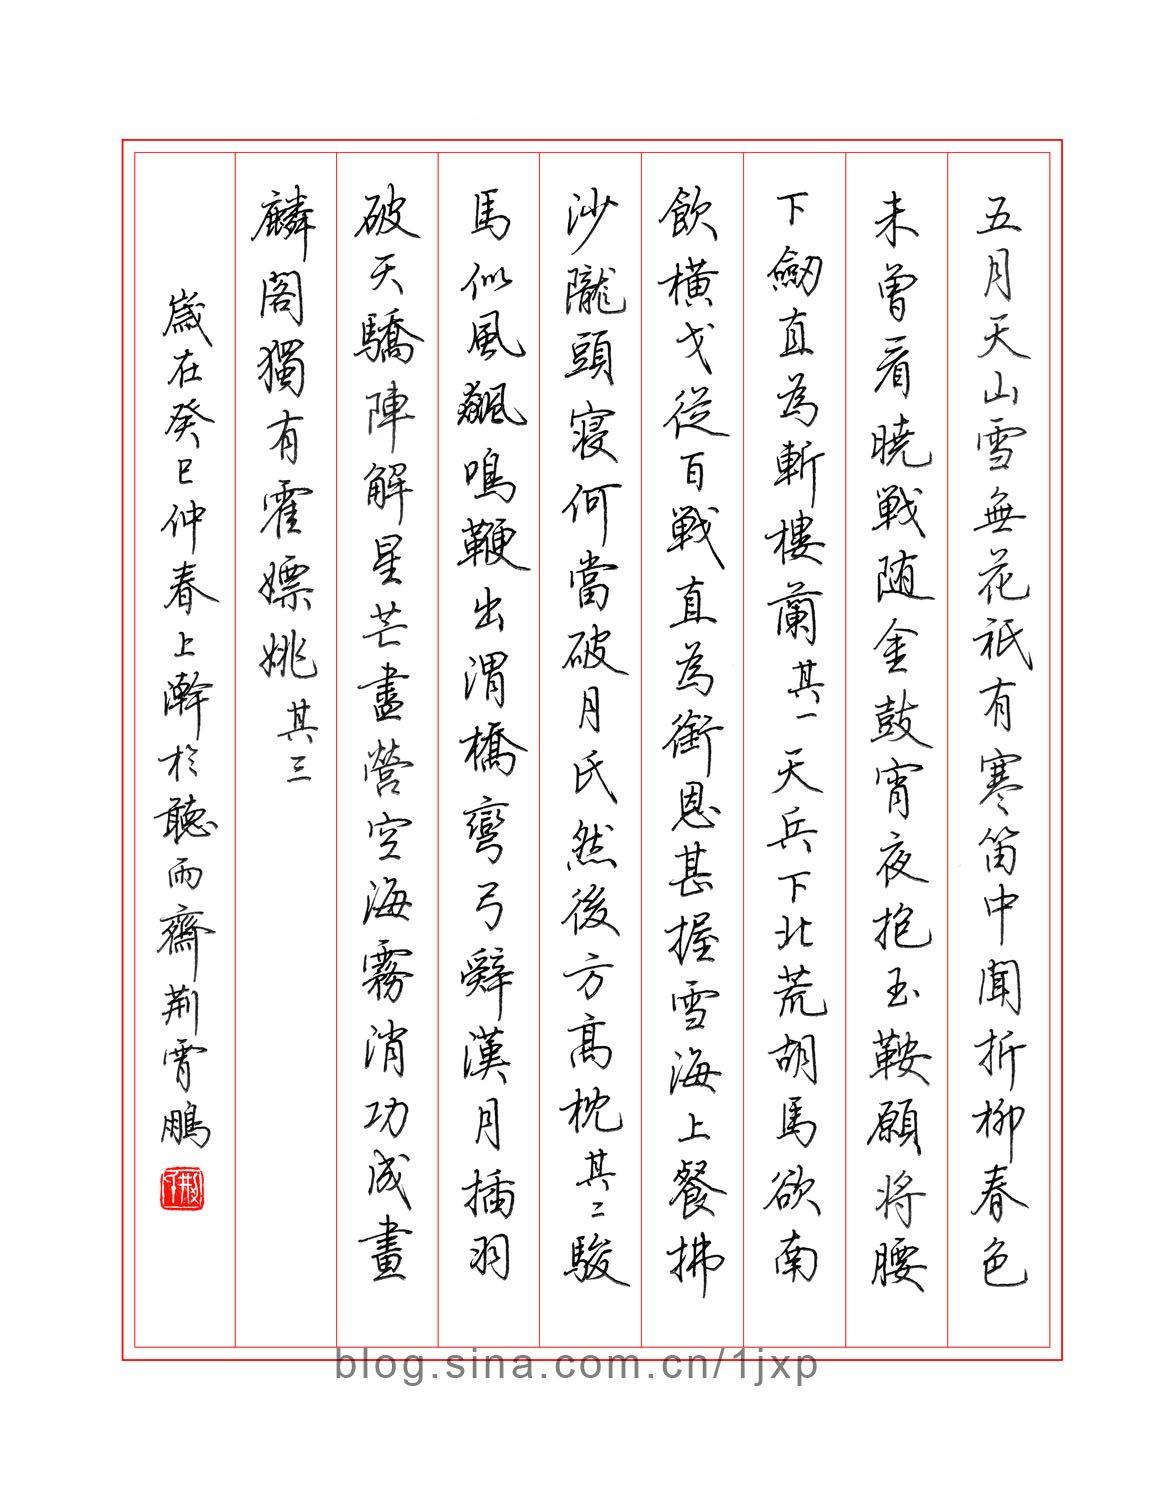 五月天山雪無花祇有寒笛中聞折柳春色
未曾看曉戰随金鼓宵夜抱玉鞍願将腰
下劒直為斬樓蘭其一天兵下北荒胡馬欲南
飲橫戈從百戰直為銜恩甚握雪海上餐拂
沙隴頭寝何當破月氏然後方高枕其二駿
馬似風飆鳴鞭出渭橋彎弓辭漢月插羽
破天驕陣解星芒盡營空海霧消功成畫
麟閣獨有霍嫖姚其三
歲在癸巳仲春上澣於聽雨齋荆霄鵬
blog.sina.com.cn/1jxp